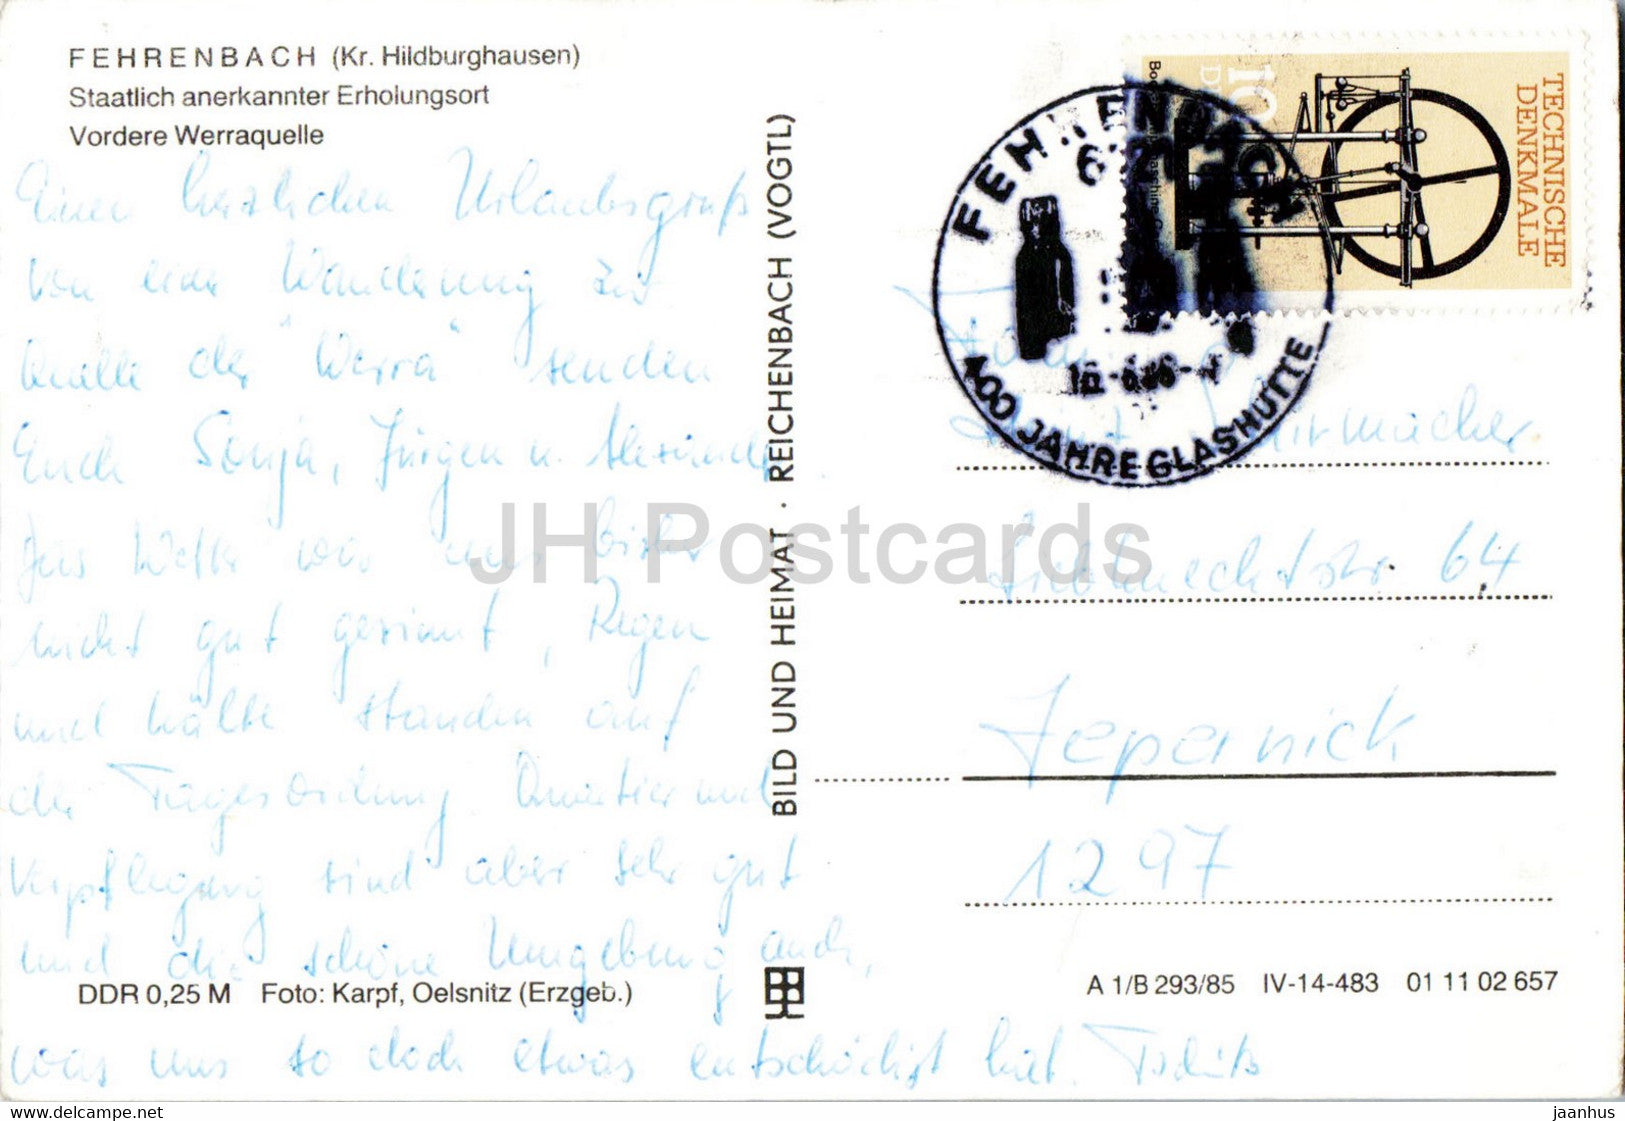 FEHRENBACH (Kr. Hildburghausen)
Staatlich anerkannter Erholungsort
Vordere Werraquelle
Einen herzlichen Urlaubsgruß
von einer Wanderung zur
Quelle der "Werra" senden
Euch Sonja, Jürgen u. Alexander
Das Wetter war uns bisher
nicht gut gesinnt, Regen
und Kälte standen auf
der Tagesordnung Quartier und
Verpflegung sind aber sehr gut
und die schöne Umgebung auch,
was uns so doch etwas entschädigt hat. Tschüß
DDR 0,25 M Foto: Karpf, Oelsnitz (Erzgeb.)
BILD UND HEIMAT · REICHENBACH (VOGTL)
TECHNISCHE
DENKMALE
10
FEHRENBACH
400 JAHRE GLASHÜTTE
Liebknechtstr. 64
Zepernick
1297
A 1/B 293/85 IV-14-483 01 11 02 657
JH Postcards
www.delcampe.net
jaanhus